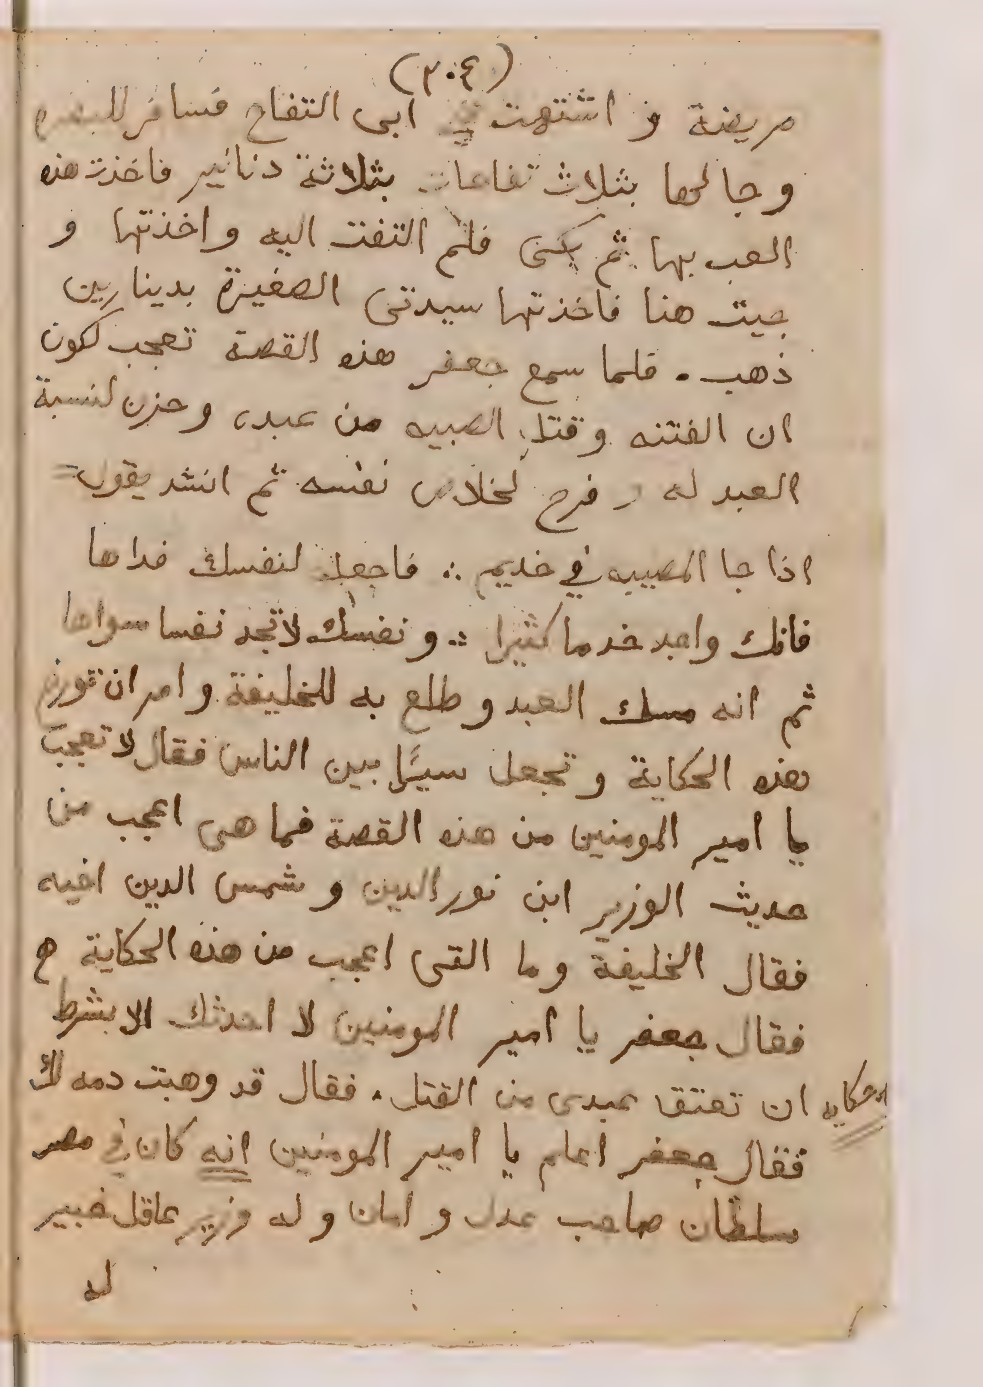 (٢٠٤)
مريضة و اشتهت في ابى التفاح فسافر للبصره
و جا لها بثلاث تفاحات بثلاثة دنانير فاخذت هذه
العب بها ثم بكى فلم التفت اليه و اخذتها و
جيت هنا فاخذتها سيدتى الصغيرة بدينارين
ذهب . فلما سمع جعفر هذه القصة تعجب لكون
ان الفتنه و قتل الصبيه من عبده و حزن لنسبة
العبد له و فرح لخلاص نفسه ثم انشد يقول =
اذا جا المصيبه في خديم ∴ فاجعل لنفسك فداها
فانك واجد خدما كثيرا ∴ و نفسك لا تجد نفسا سواها
ثم انه مسك العبد و طلع به للخليفة و امر ان تورخ
هذه الحكاية و تجعل سيرا بين الناس فقال لا تعجب
يا امير المومنين من هذه القصة فما هى اعجب من
حديث الوزير ابن نور الدين و شمس الدين اخيه
فقال الخليفة و ما التى اعجب من هذه الحكاية ح
فقال جعفر يا امير المومنين لا احدثك الا بشرط
ان تعتق عبدى من القتل . فقال قد وهبت دمه لك
حكايه
فقال جعفر اعلم يا امير المومنين انه كان في مصر
سلطان صاحب عدل و امان و له وزير عاقل خبير
له